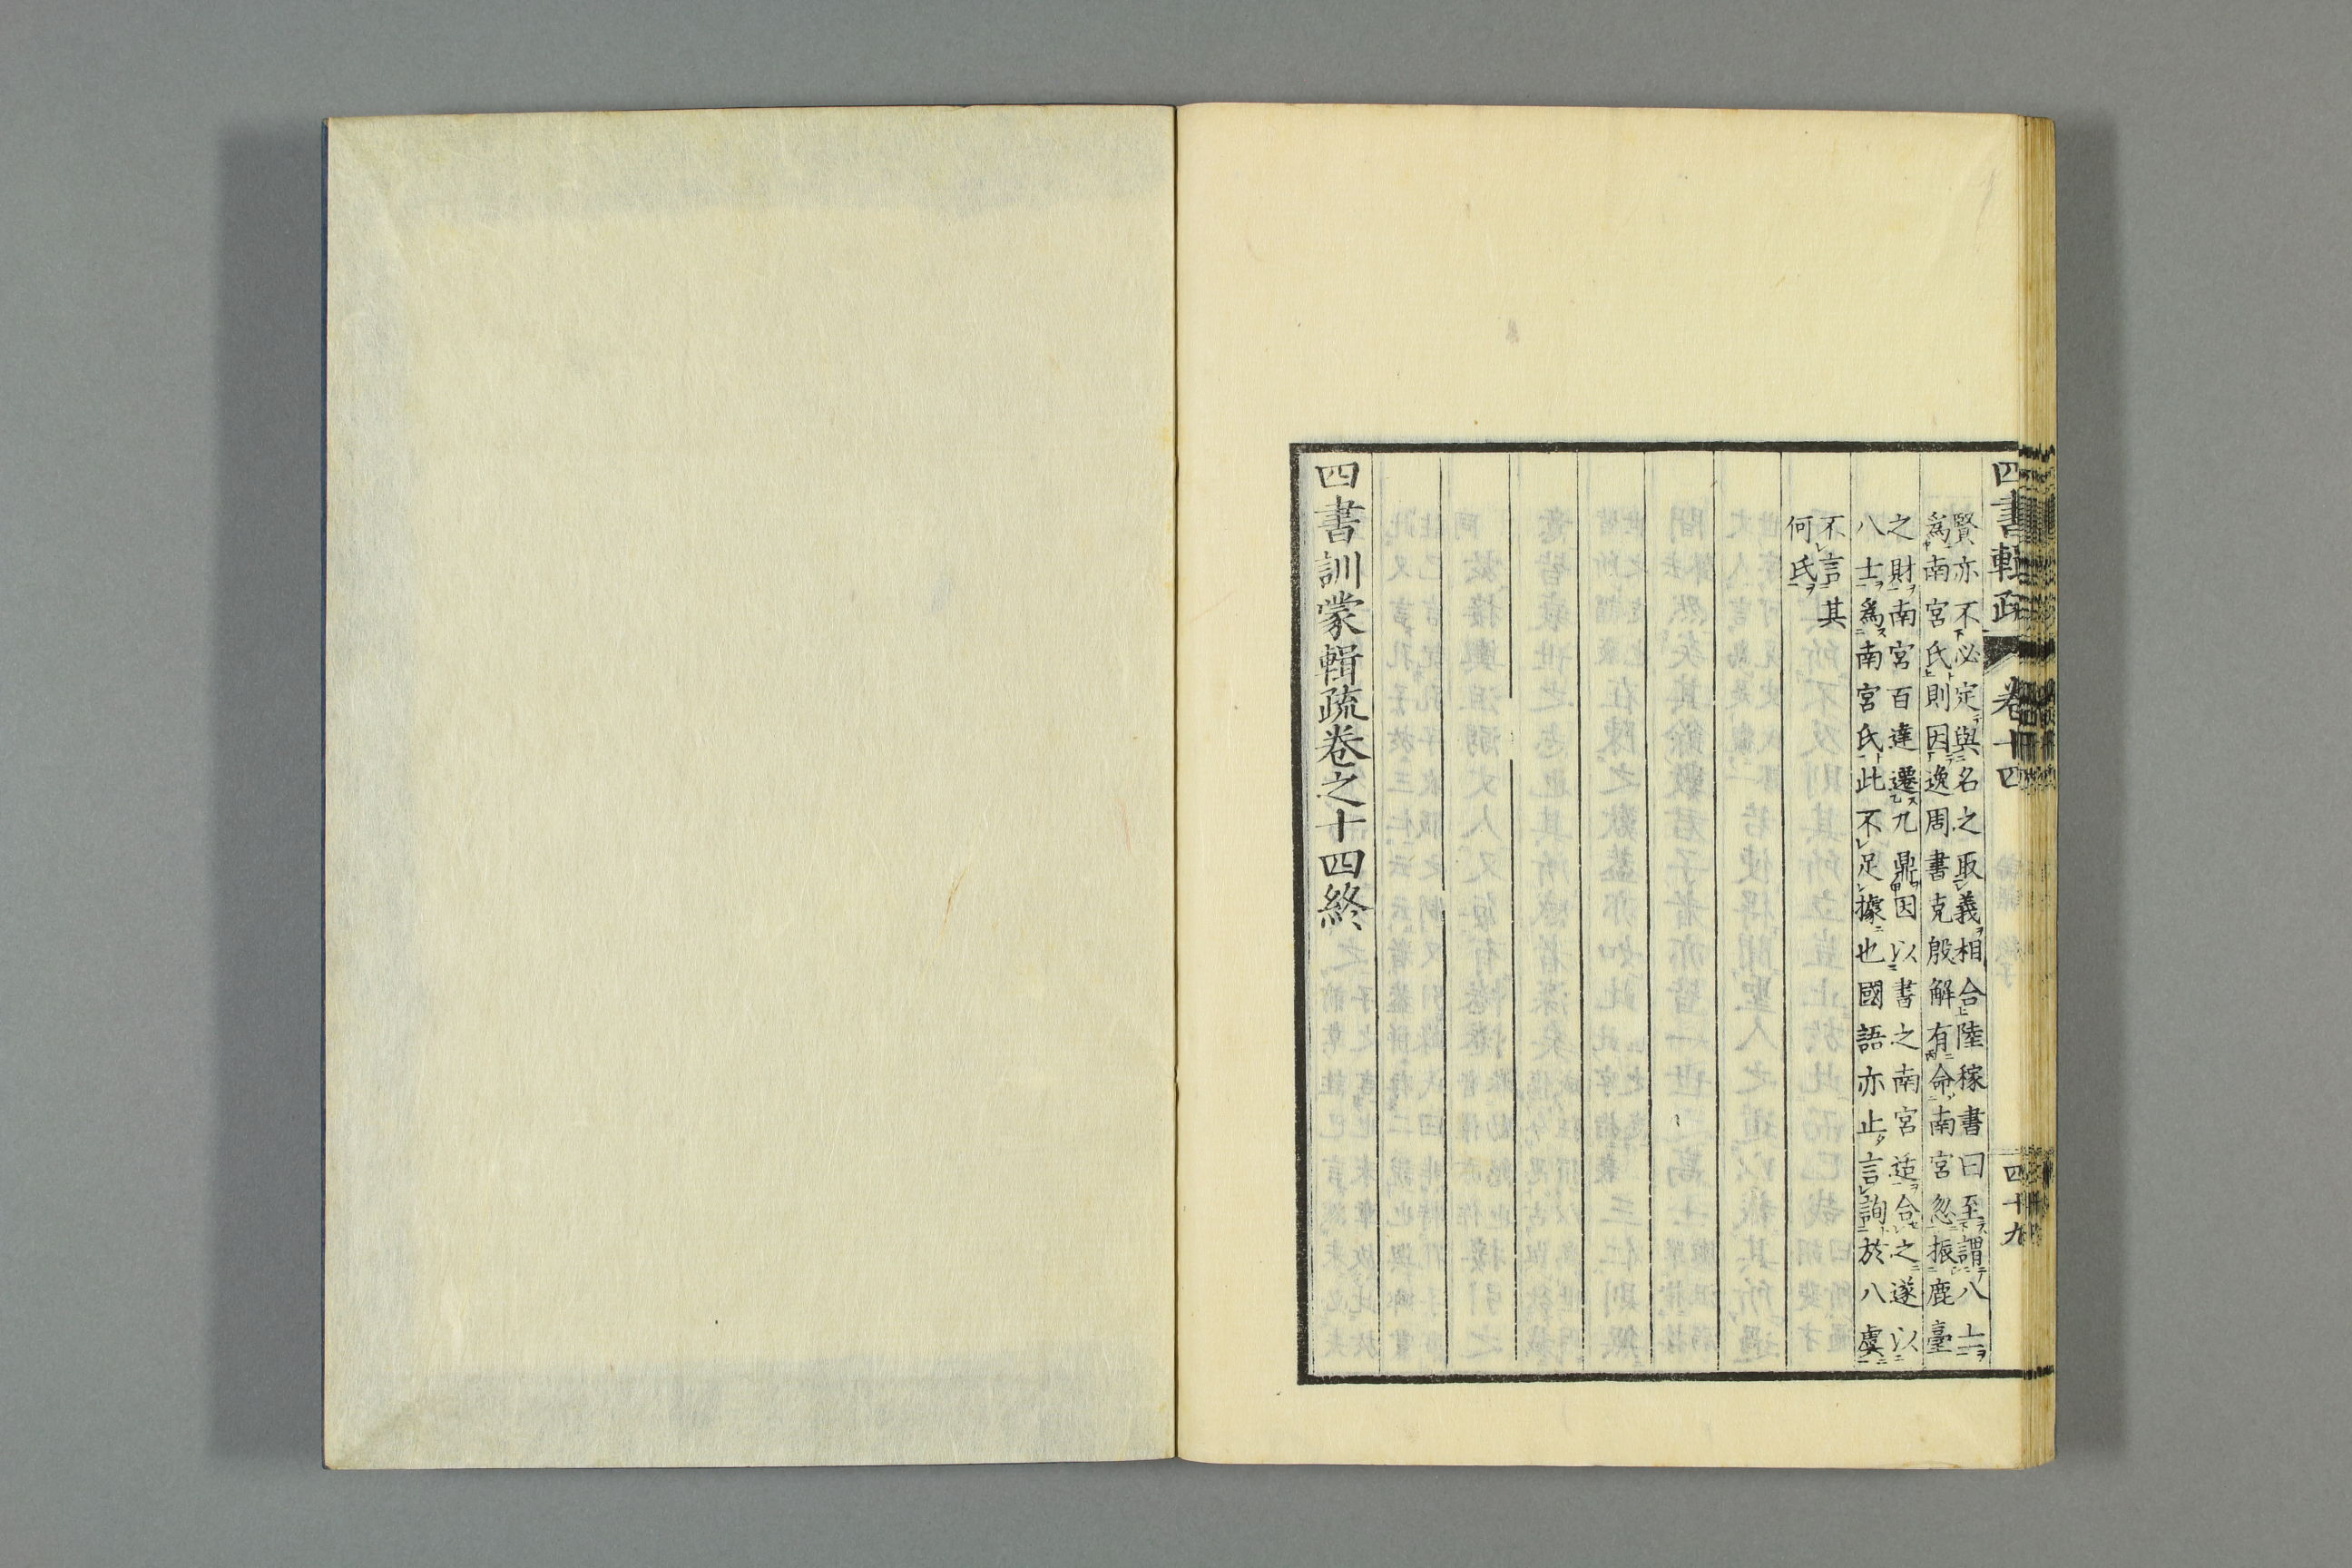 四書輯疏 卷十四 四十九
賢亦不必定與名之取義相合陸稼書曰至謂八士
為南宮氏則因逸周書克殷解有命南宮忽振鹿臺
之財南宮百達遷九鼎因以書之南宮适合之遂以
八士為南宮氏此不足據也國語亦止言詢於八虞
不言其
何氏
四書訓蒙輯疏卷之十四終